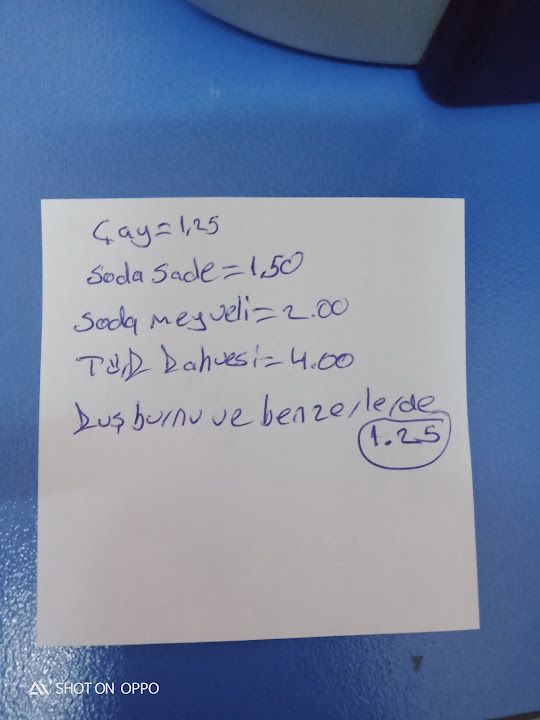 Çay=1,25
Soda Sade=1,50
Soda meyveli=2.00
Türk kahvesi=4.00
kuşburnu ve benzerleride
1.25
SHOT ON OPPO